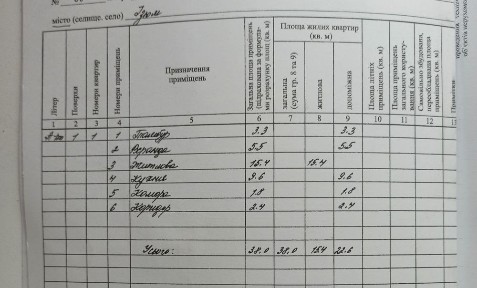 №
місто (селище, село) Ізюм
Літер
Поверхи
Номери квартир
Номери приміщень
Призначення приміщень
Загальна площа приміщень (підрахована за формулами розрахунку площ) (кв. м)
Площа жилих квартир (кв. м)
загальна (сума гр. 8 та 9)
житлова
допоміжна
Площа літніх приміщень (кв. м)
Площа приміщень загального користування (кв. м)
Самочинно збудовані, переобладнані площа приміщень (кв. м)
Примітки
1 2 3 4 5 6 7 8 9 10 11 12 13
1 1 1 3.3 3.3
2 Веранда 5.5 5.5
3 Житлова 15.4 15.4
4 Кухня 9.6 9.6
5 Комора 1.8 1.8
6 Коридор 2.4 2.4
Усього: 38.0 38.0 15.4 22.6